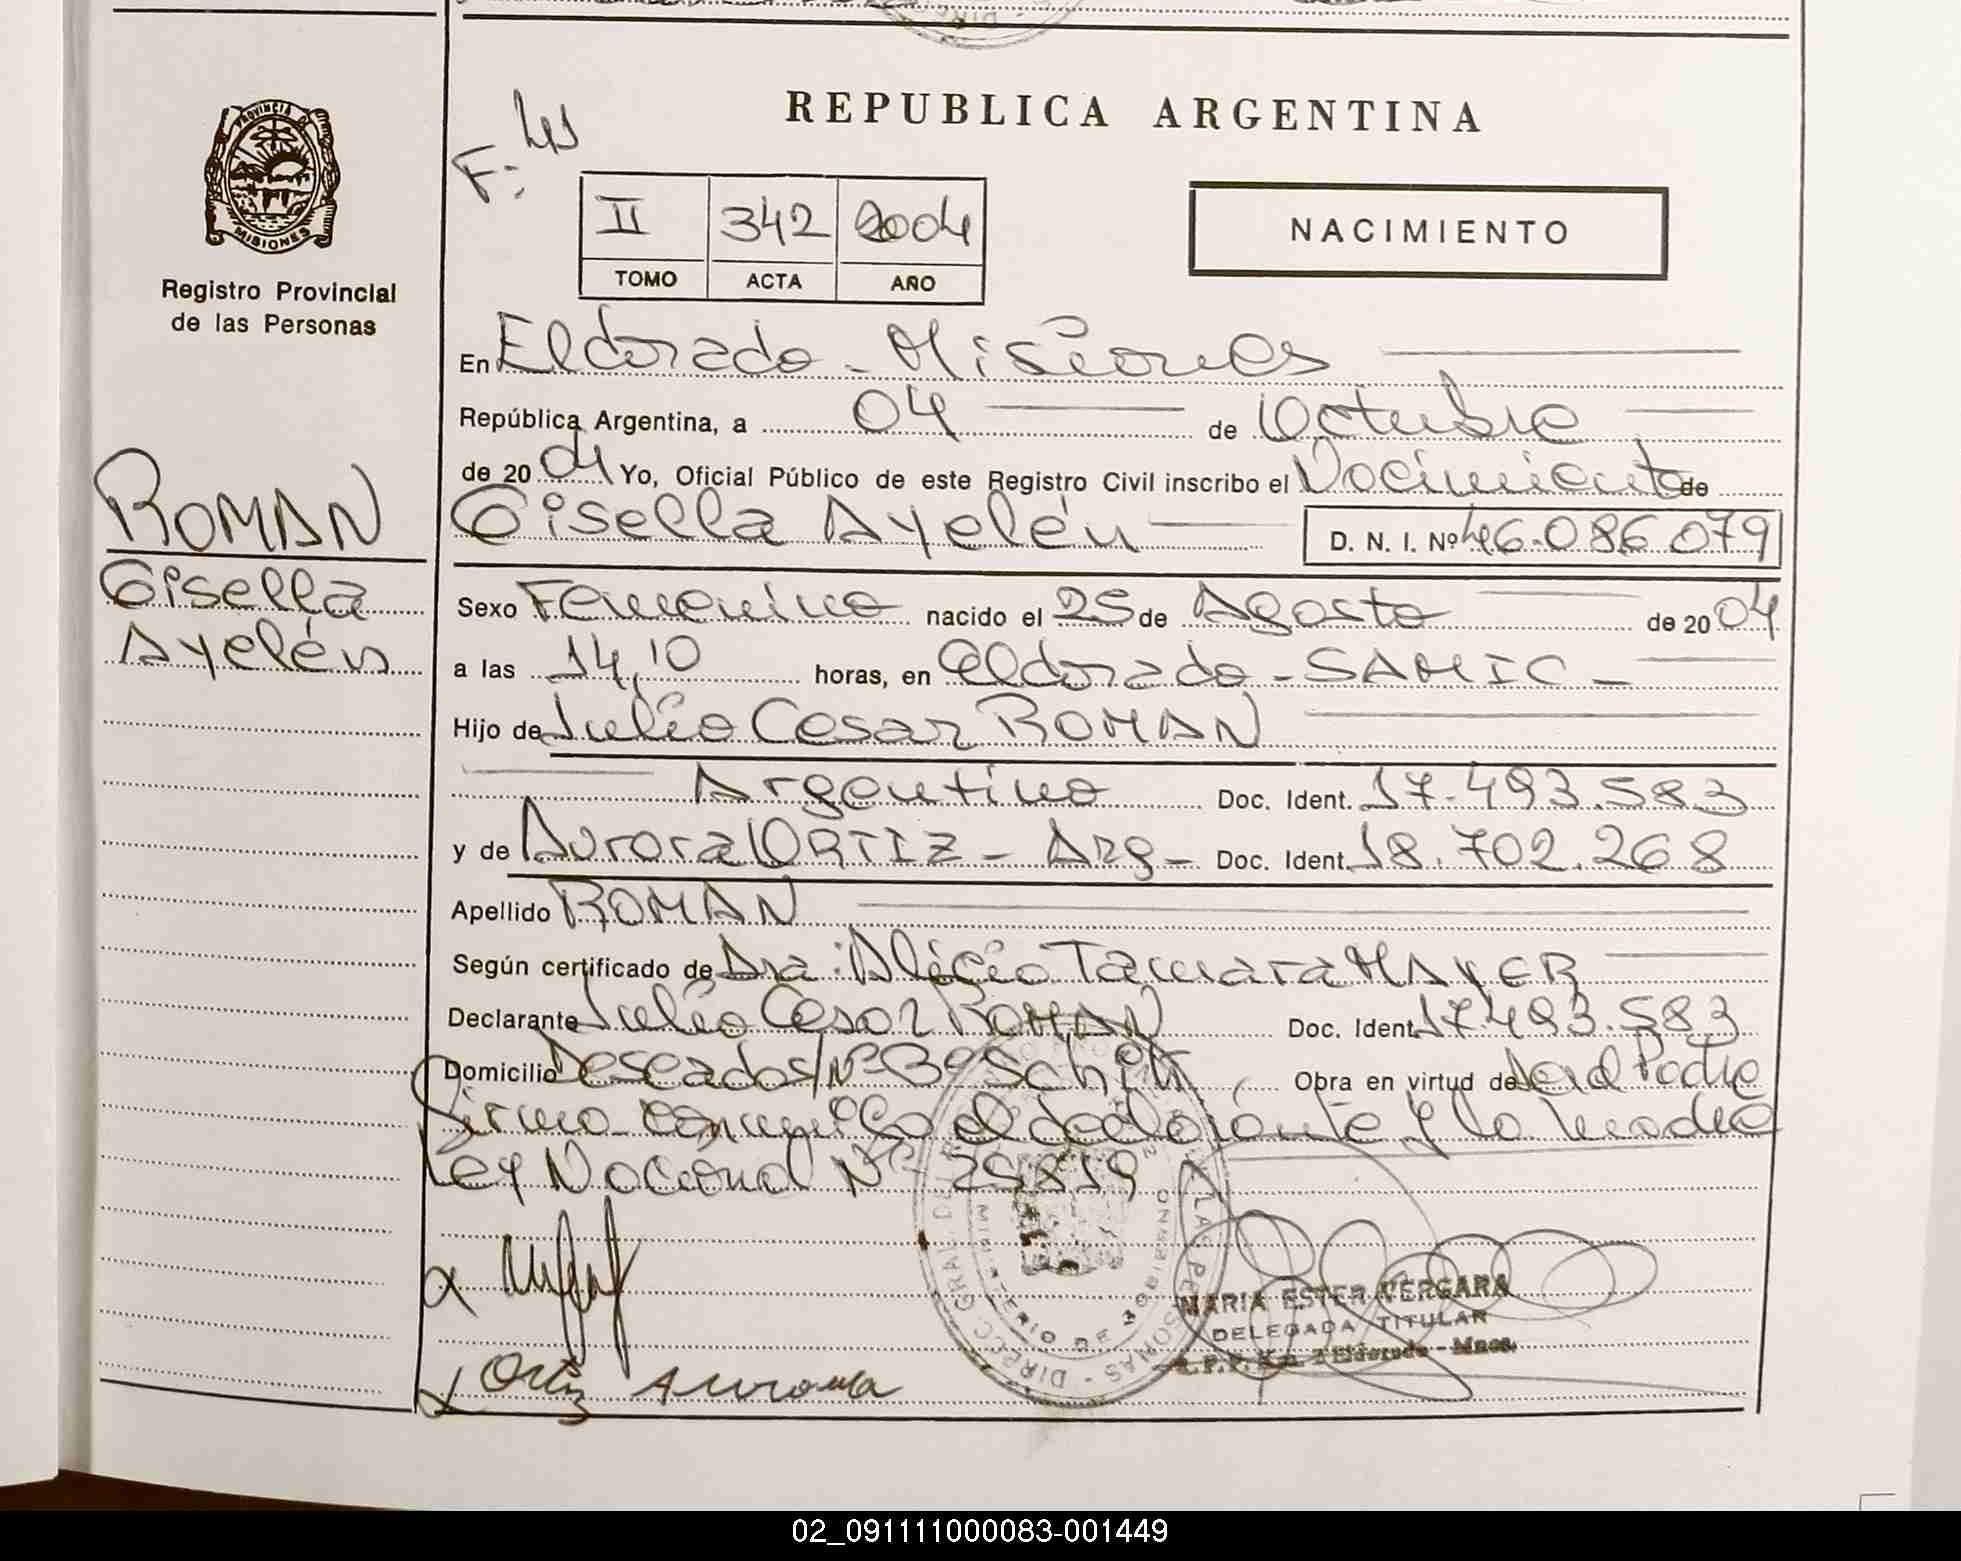 REPUBLICA ARGENTINA
PROVINCIA D MISIONES
Registro Provincial
de las Personas
F: 41
II 342 2004
TOMO ACTA AÑO
NACIMIENTO
En Eldorado - Misiones
República Argentina, a 04 de Octubre
de 2004 Yo, Oficial Público de este Registro Civil inscribo el Nacimiento de
Gisella Ayelén D. N. I. Nº 46.086.079
ROMAN
Gisella
Ayelén
Sexo Femenino nacido el 25 de Agosto de 2004
a las 14,10 horas, en Eldorado - SAMIC -
Hijo de Julio Cesar ROMAN
Argentino Doc. Ident. 17.493.583
y de Aurora ORTIZ - Arg - Doc. Ident. 18.702.268
Apellido ROMAN
Según certificado de Dra: Alicia Tamara MAYER
Declarante Julio Cesar ROMAN Doc. Ident. 17.493.583
Domicilio Deseados/Nº Bº Obra en virtud de ser el Padre
firma conmigo el declarante y la madre
Ley Nacional Nº 25819
MARIA ESTER VERGARA
DELEGADA TITULAR
Eldorado - Mnes.
Ortiz Aurora
02_091111000083-001449